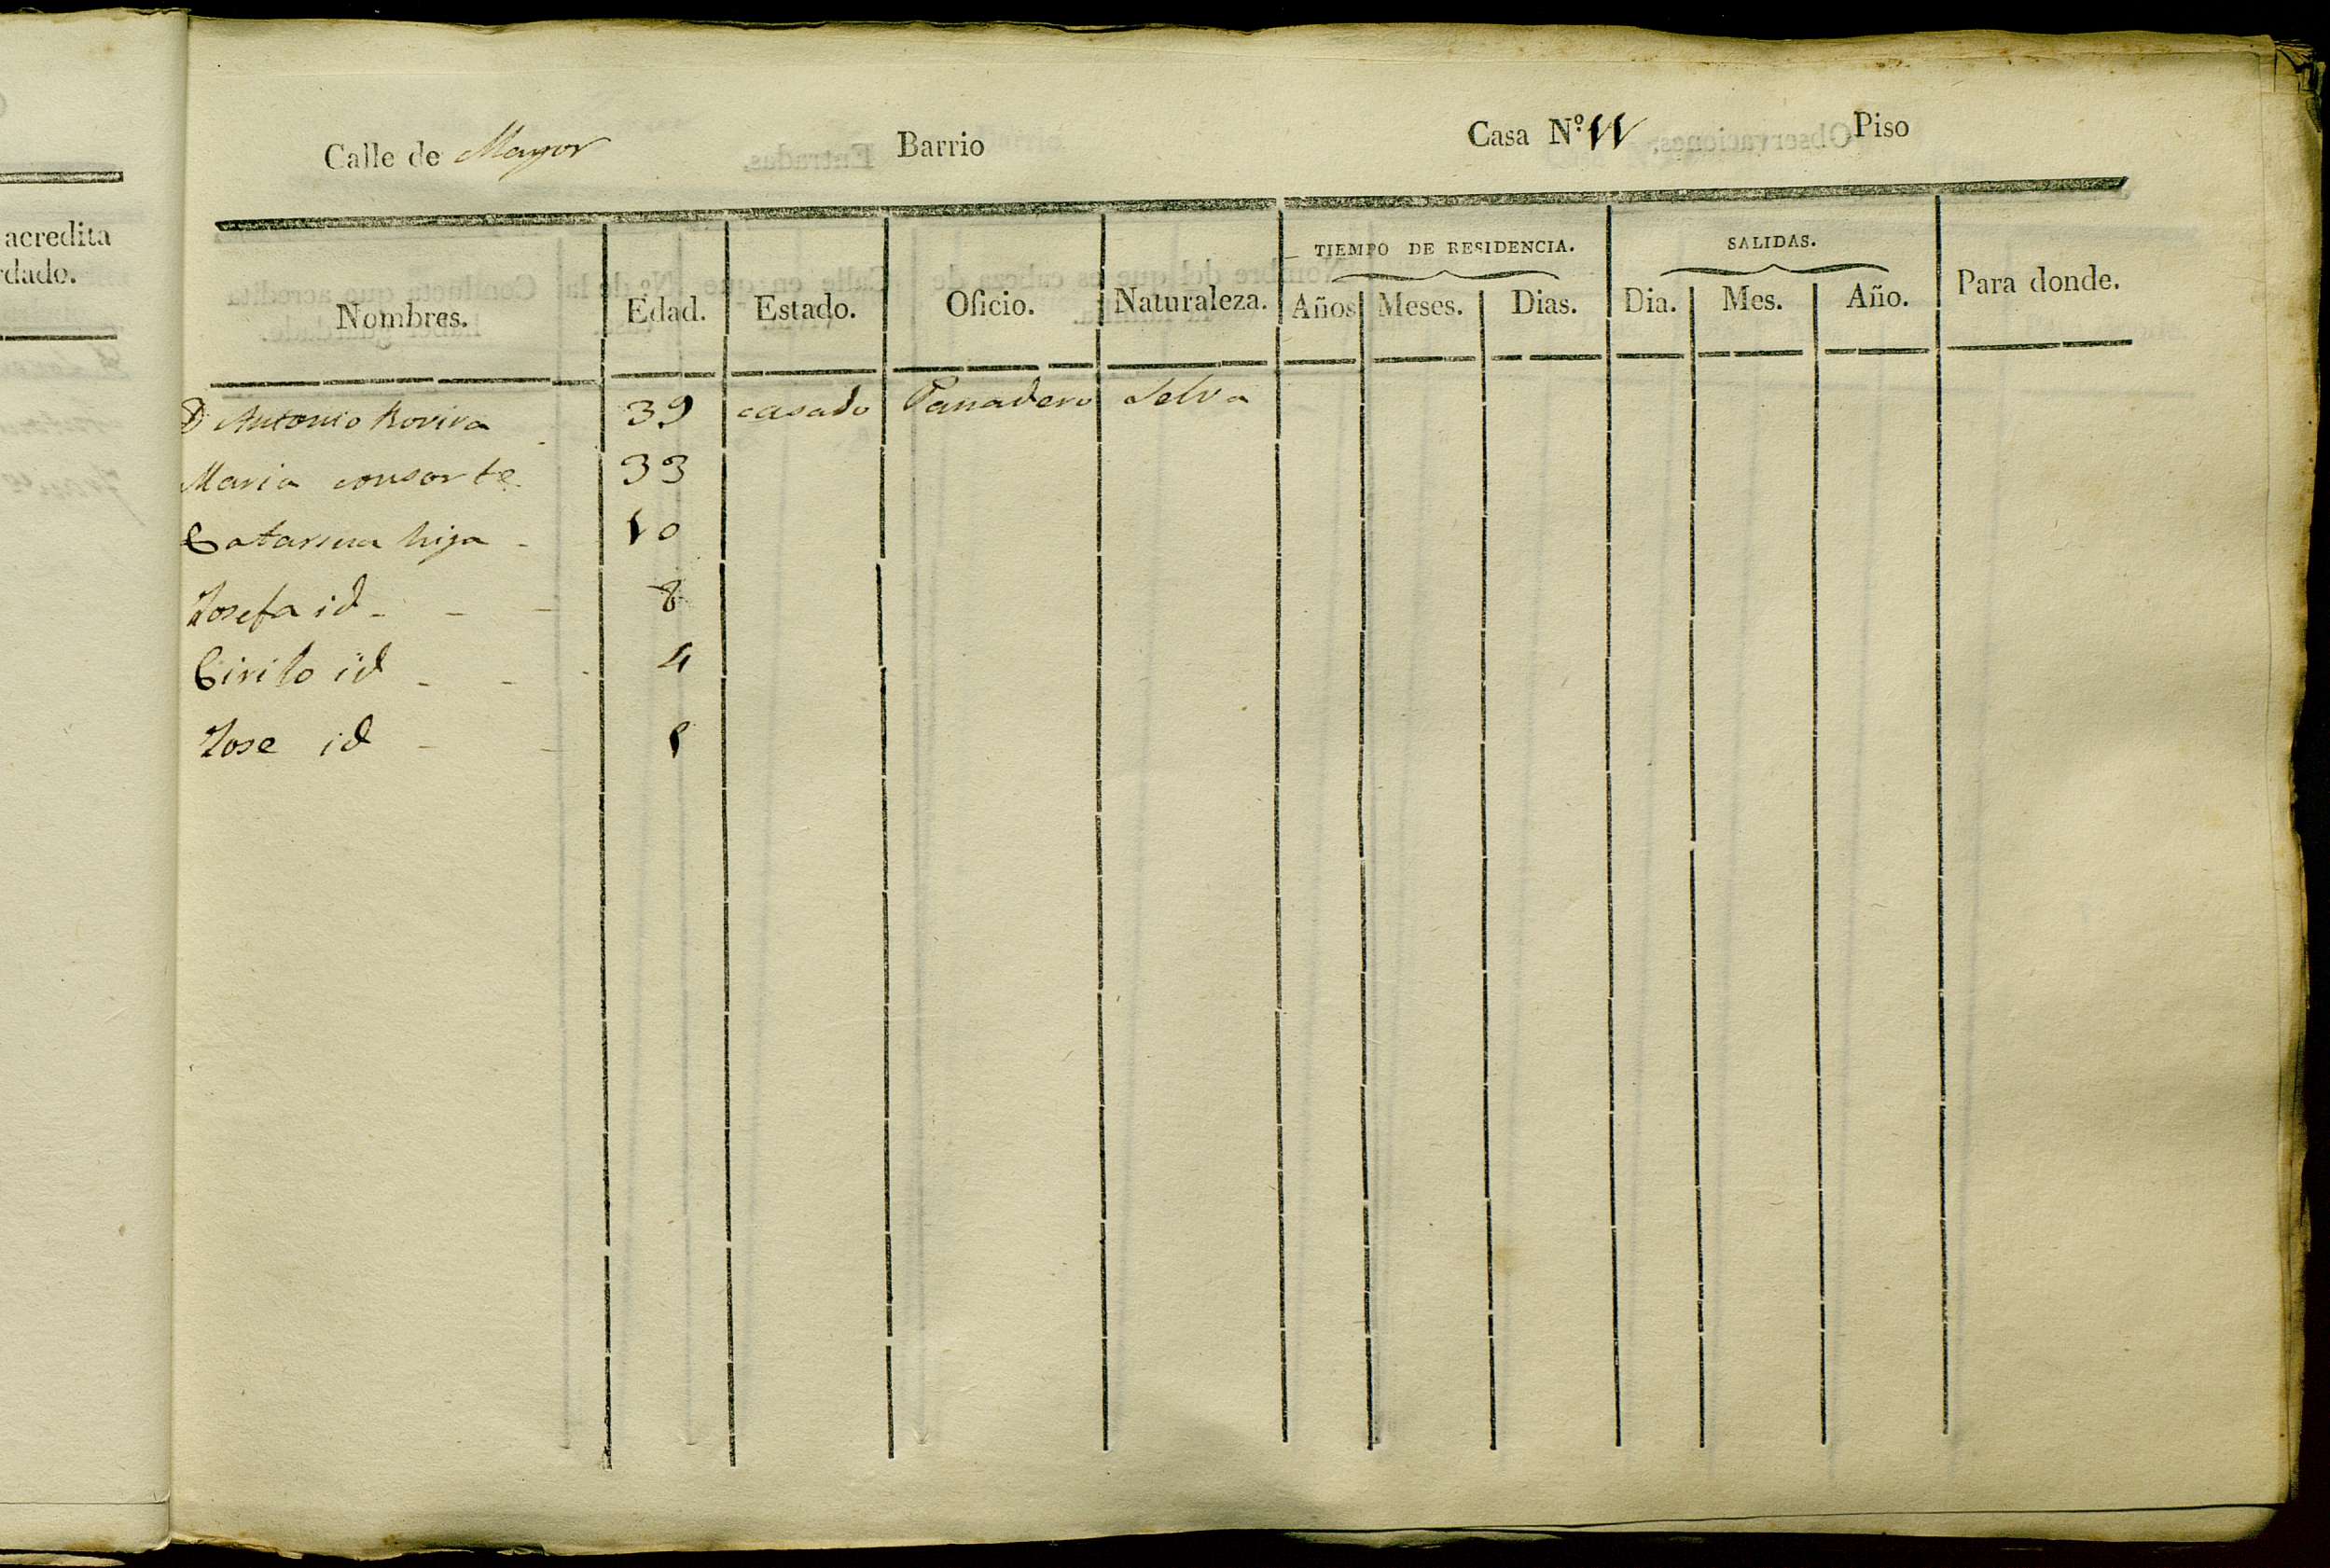 acredita
rdado.
Calle de Mayor Barrio Casa N.º 11 Piso
TIEMPO DE RESIDENCIA. SALIDAS.
Nombres. Edad. Estado. Oficio. Naturaleza. Años Meses. Dias. Dia. Mes. Año. Para donde.
D Antonio Rovira 39 casado Panadero Selva
Maria consorte 33
Catarina hija - 10
Josefa id - - - 8
Cirilo id - - - 4
Jose id - - 1